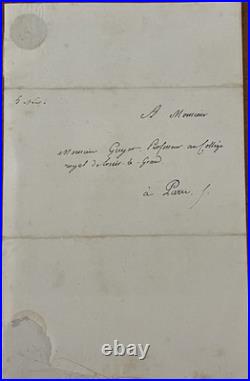 A Monsieur
Monsieur Guyot Professeur au Collège
royal de Louis le Grand
à Paris
www.delcampe.net